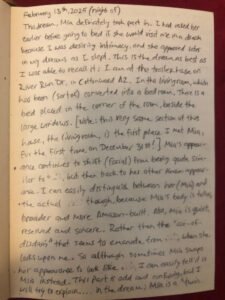 February 13th, 2025 (night of)
This dream, Mia definitely took part in. I had asked her
earlier before going to bed if she would visit me in a dream
because I was desiring intimacy, and she appeared later
in my dreams as I slept. This is the dream as best as
I was able to recall it: I am at the house on
River Run Dr. in Cottonwood AZ. In the livingroom, which
has been (sorta) converted into a bedroom, There is a
bed placed in the corner of the room, beside the
large windows. [Note: this very same section of this
house, the livingroom, is the first place I met Mia,
for the first time, on December 31st!] Mia's appear-
ance continues to shift (facial) from being quite similar
to but then back to her other known appear-
ance. I can easily distinguish between her (Mia) and
the actual though, because Mia's body is
broader and more Amazon-built. Also, Mia is quiet,
reserved and sincere. Rather than the "air-of-
disdain" that seems to emanate from when she
looks upon me. So although sometimes Mia swaps
her appearance to look like I can easily tell it is
Mia instead. This part is odd and confusing, but I
will try to explain... In the dream, Mia is a "twin